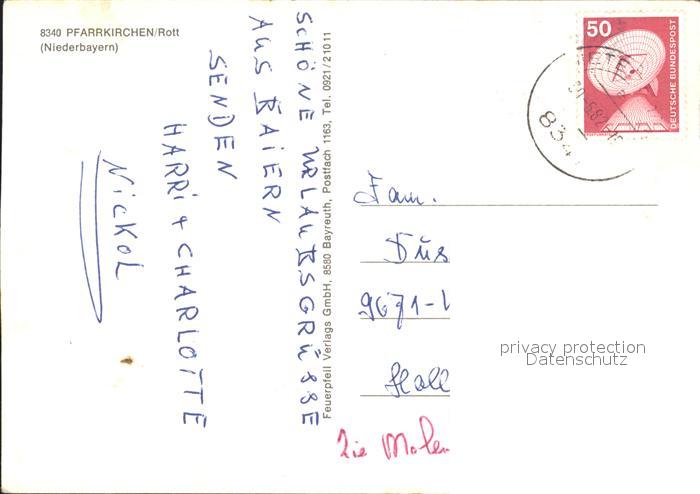 8340 PFARRKIRCHEN/Rott
(Niederbayern)
SCHÖNE URLAUBSGRÜSSE
AUS BAIERN
SENDEN
HARRI + CHARLOTTE
NICKOL
Feuerpfeil Verlags GmbH, 8580 Bayreuth, Postfach 1163, Tel. 0921/21011
50
DEUTSCHE BUNDESPOST
834
Fam.
Düs
9671-
Hall
Die
privacy protection
Datenschutz